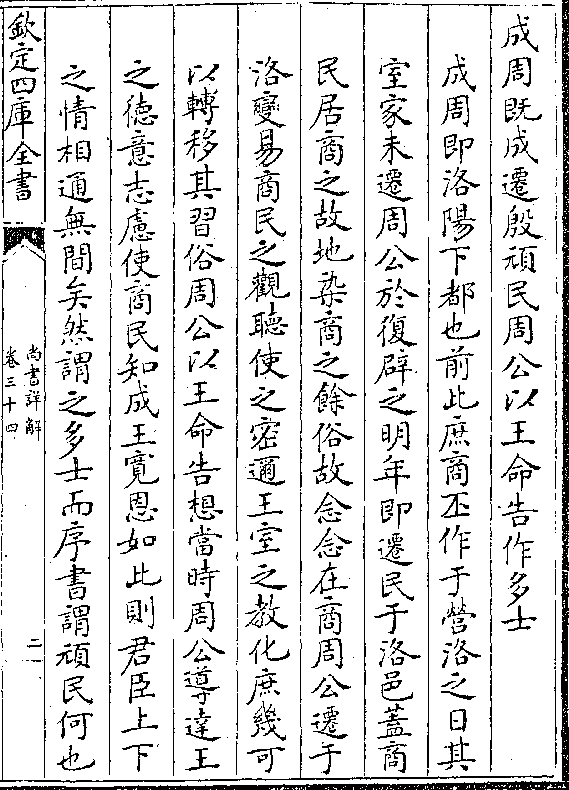 成周既成遷殷頑民周公以王命告作多士
成周即洛陽下都也前此庶商丕作于營洛之日其
室家未遷周公於復辟之明年即遷民于洛邑蓋商
民居商之故地染商之餘俗故念念在商周公遷于
洛變易商民之觀聽使之密邇王室之教化庶幾可
以轉移其習俗周公以王命告想當時周公導達王
之徳意志慮使商民知成王寛恩如此則君臣上下
之情相通無間矣然謂之多士而序書謂頑民何也
欽定四庫全書
尚書詳解
卷三十四
二